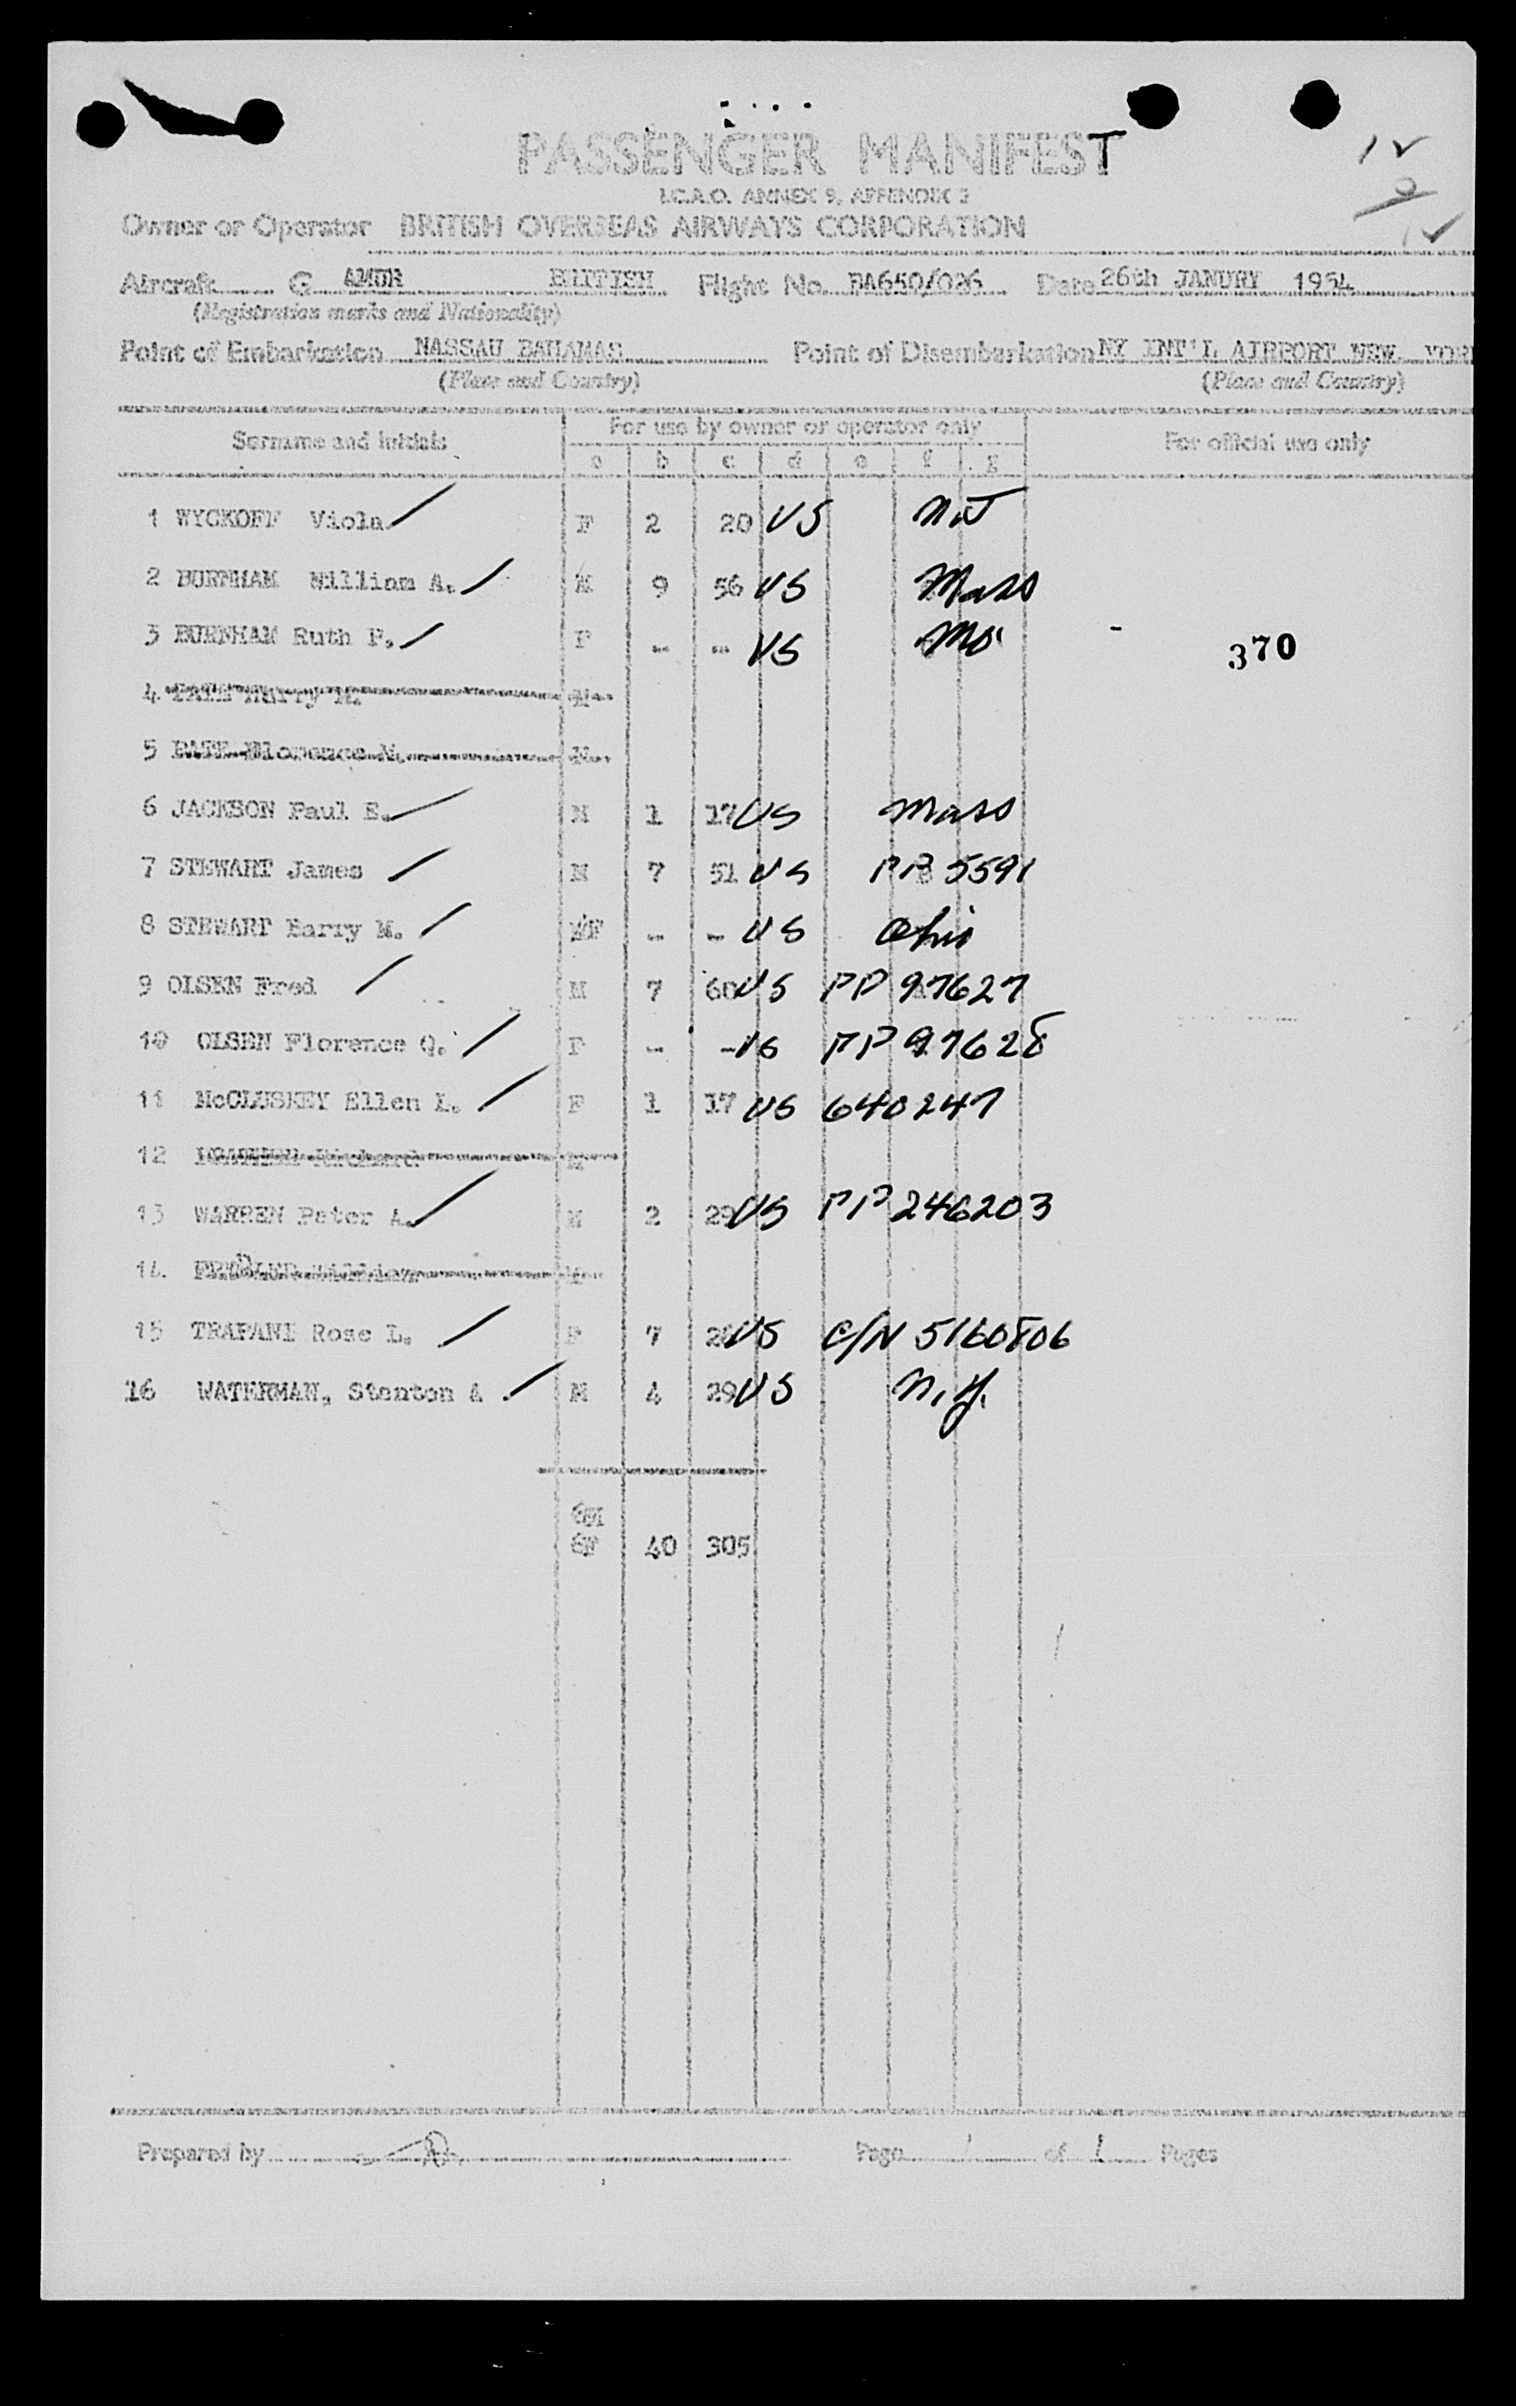 PASSENGER MANIFEST
I.C.A.O. ANNEX 9, APPENDIX 3
Owner or Operator BRITISH OVERSEAS AIRWAYS CORPORATION
Aircraft G AMUR BRITISH Flight No. BA650/026 Date 26th JANURY 1954
(Registration marks and Nationality)
Point of Embarkation NASSAU BAHAMAS Point of Disembarkation NY INT'L AIRPORT NEW YORK
(Place and Country) (Place and Country)
Surname and initials For use by owner or operator only For official use only
a b c d e f g
1 WYCKOFF Viola F 2 20 US NJ
2 BURNHAM William A. M 9 56 US Mass
3 BURNHAM Ruth P. F - - US Mo. - 370
4 Harry M. M
5 PATE Florence N.
6 JACKSON Paul E. M 1 17 US Mass
7 STEWART James M 7 51 US PP 5591
8 STEWART Harry M. F - - US Ohio
9 OLSEN Fred M 7 60 US PP 97627
10 OLSEN Florence Q. F - - US PP 97628
11 McCLUSKEY Ellen L. F 1 17 US 640247
12 Richard M
13 WARREN Peter A. M 2 29 US PP 246203
14
15 TRAPANI Rose L. F 7 US C/N 5160806
16 WATERMAN, Stanton A M 4 29 US N.Y.
6M
6F 40 305
Prepared by Page 1 of 1 Pages